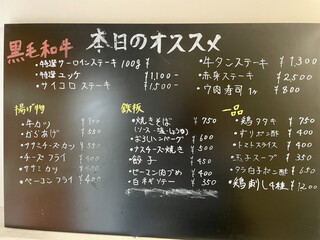 黒毛和牛
本日のオススメ
・特選サーロインステーキ 100g ¥
・特選ユッケ ¥1,100-
・サイコロステーキ ¥1,500-
・牛タンステーキ ¥1,300
・赤身ステーキ ¥2,500
・ウ肉寿司 ¥800
揚げ物
・牛カツ ¥
・からあげ ¥550
・ササミチーズカツ ¥550
・チーズフライ ¥400
・ササミカツ ¥
・ベーコンフライ ¥400
鉄板
・焼きそば ¥750
(ソース・塩・しょうゆ)
・おろしハンバーグ ¥600
・ナスチーズ焼き ¥500
・餃子 ¥450
・ピーマン肉づめ ¥400
・白ネギソテー ¥350
一品
・鶏タタキ ¥750
・ずりポン酢 ¥400
・トマトスライス ¥400
・玉子スープ ¥350
・タラ白子ポン酢 ¥650
・鶏刺し4種 ¥1200